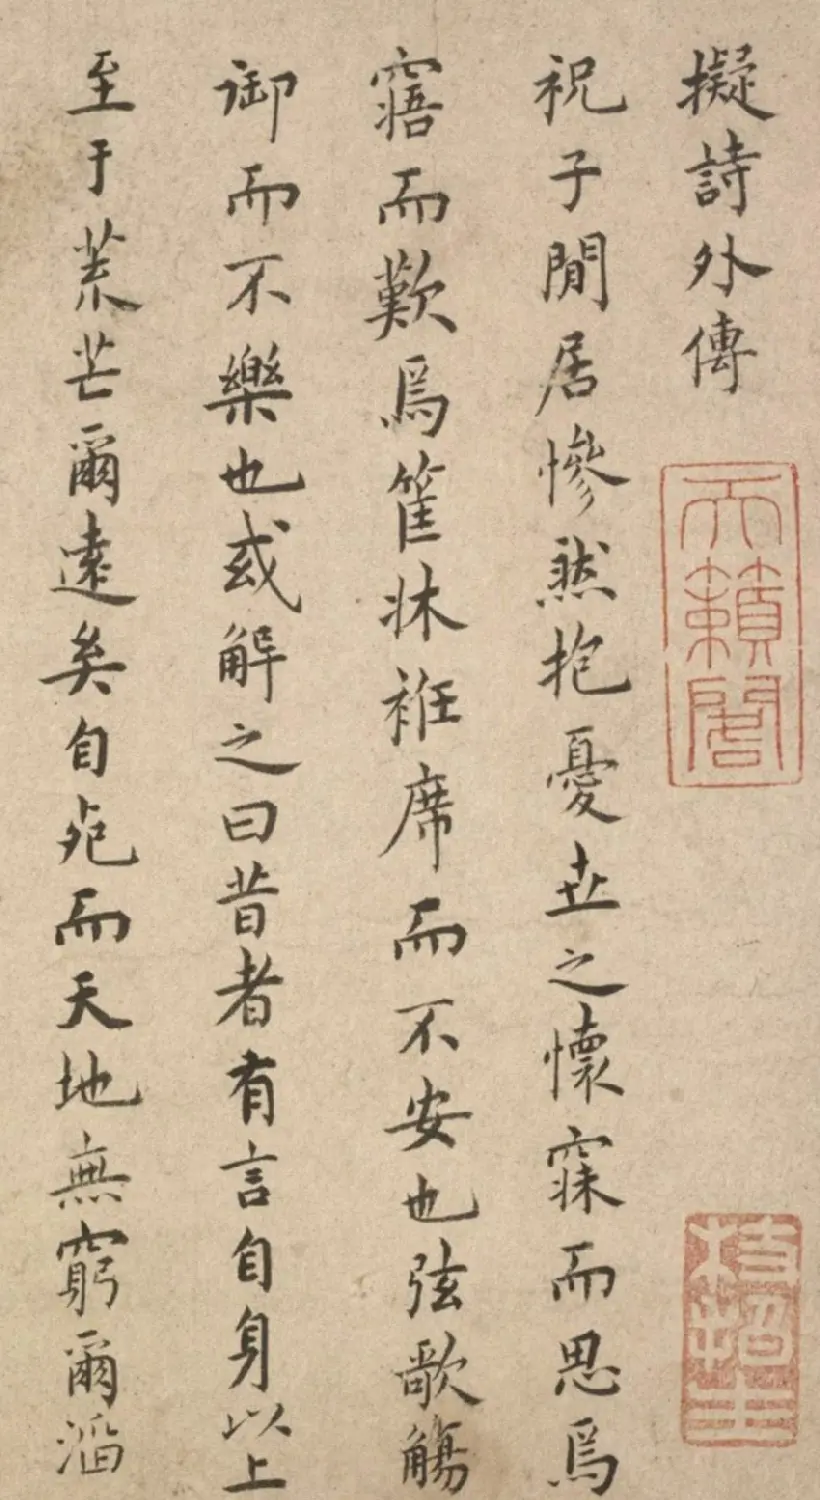 擬詩外傳
天籟閣
枝指生
祝子閒居慘然抱憂世之懷寐而思焉
寤而歎焉筐牀袵席而不安也弦歌觴
御而不樂也或解之曰昔者有言自身以上
至于荒芒爾遠矣自死而天地無窮爾滔